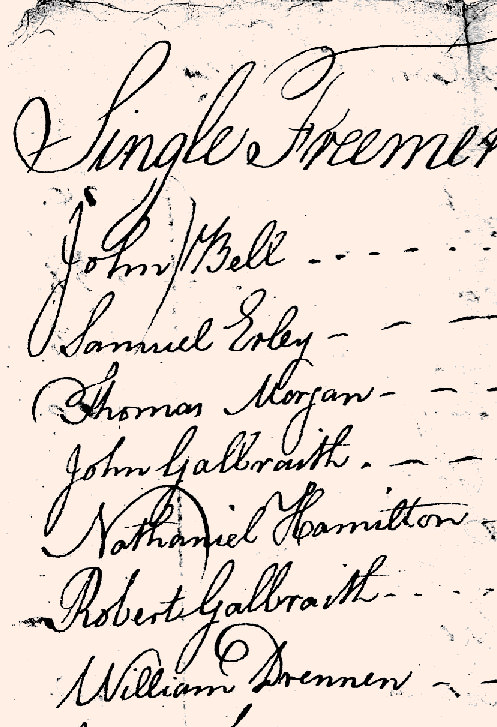 Single Freemen
John Bell - - - - - -
Samuel Erley - - -
Thomas Morgan - - -
John Galbraith . - -
Nathaniel Hamilton -
Robert Galbraith - - - -
William Drennen - -